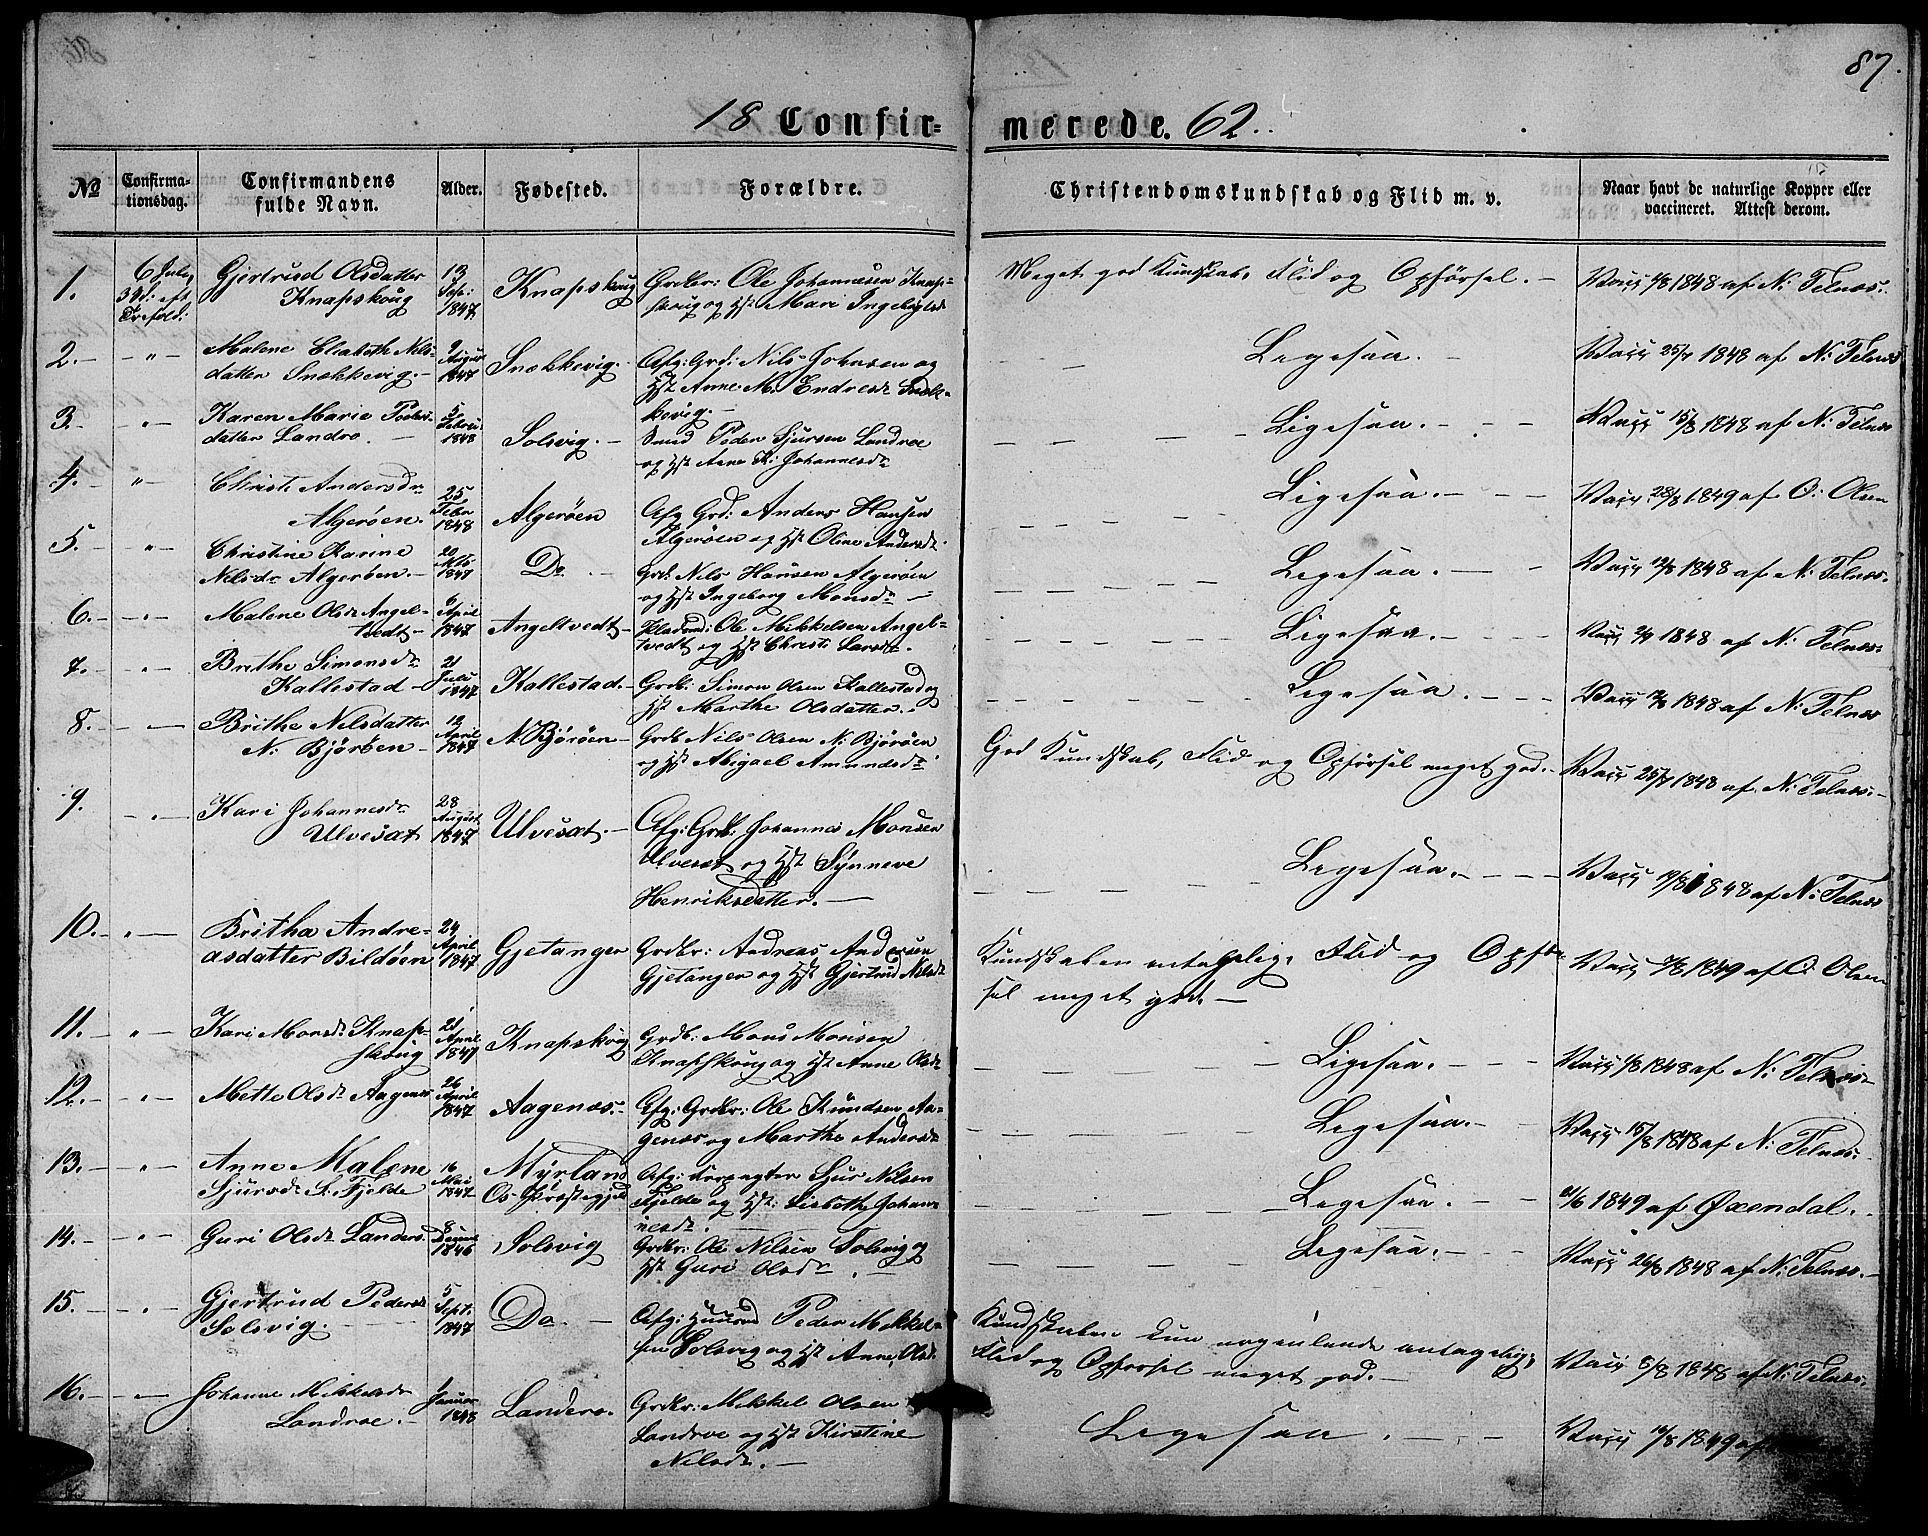 87.
18 Confirmerede. 62.
No
Confirmationsdag.
Confirmandens fulde Navn.
Alder.
Fødested.
Forældre.
Christendomskundskab og Flid m. v.
Naar havt de naturlige Kopper eller vaccineret. Attest derom.
1.
6 Juli
3 S: eft.
Trefold:
Gjertrud Olsdatter
Knapskoug
13
Sep:
1847.
Knapskoug
Grdbr: Ole Johannesen Knap-
skoug og Hst: Mari Ingebrigtsd
Meget god Kundskab, Flid og Opførsel. —
Vacc 1/8 1848 af N: Telnæs.
2. — " —
Malene Elisabeth Nils-
datter Snekkevig. —
9
August
1847
Snekkevig.
Afg: Grd: Nils Johnsen og
Hst Anne M. Endresdr Snek-
kevig. —
Ligesaa. —
Vacc 25/7 1848 af N: Telnæs
3. — " —
Karen Marie Peders-
datter Landro. —
5
Febru
1848
Solsvig. —
Peder Sjursen Landroe
og Hst Anne K: Johannesdr
Ligesaa. — —
Vacc 15/8 1848 af N: Telnæs
4. — " —
Christi Andersdr
Algerøen.
25
Febr
1848
Algerøen
Afg Grd: Anders Hansen
Algerøen og Hst Oline Andersdr.
Ligesaa. — —
Vacc 28/8 1849 af O: Olsen
5. — " —
Christine Karine
Nilsdr Algerøen —
20
1847
Do —
Grd: Nils Hansen Algerøen
og Hst Ingeborg Monsdr —
Ligesaa. — —
Vacc 12/8 1848 af N: Telnæs.
6. — " —
Malene Olsdr Angel-
tvedt —
6
April
1847
Angeltvedt —
Ole Mikkelsen Angel-
tvedt og Hst Christi Larsdr.
Ligesaa. — —
Vacc 1848 af N: Telnæs.
7. — " —
Brithe Simonsdr
Kallestad —
21
Juli
1847
Kallestad. —
Grdb: Simon Olsen Kallestad og
Hst Marthe Olsdatter. —
Ligesaa. — —
Vacc 1848 af N: Telnæs
8. — —
Brithe Nilsdatter
N: Bjørøen —
12
April
1847
N. Bjørøen —
Grdb Nils Olsen N: Bjørøen
og Hst Abigael Amundsdr
God Kundskab, Flid og Opførsel meget god. —
Vacc 25/7 1848 af N: Telnæs. —
9. — " —
Kari Johannesdr
Ulvesæt
28
August
1847
Ulvesæt. —
Afg: Grdb: Johannes Monsen
Ulvesæt og Hst Synneve
Henriksdatter. —
Ligesaa. — — —
Vacc 19/8 1848 af N: Telnæs
10. — " —
Britha Andre-
asdatter Bildøen
24
April
1847
Gjetanger
Grdbr: Andreas Andersen
Gjetanger og Hst Gjertrud Nilsdr
Kundskaben antagelig, Flid og Opfør-
sel meget god. —
Vacc 1849 af O: Olsen
11. — "
Kari Monsdr Knap-
skoug
21
April
1847
Knapskoug
Grdb: Mons Monsen
Knapskoug og Hst Anne Olsdr
Ligesaa. — —
Vacc 1/8 1848 af N: Telnæs
12. — " —
Mette Olsdr Aagenæs
26
April
1847
Aagenæs —
Afg: Grdbr: Ole Knudsen Aa-
genæs og Marthe Andersdr
Ligesaa. —
Vacc 15/8 1848 af N: Telnæs.
13. — " —
Anne Malene
Sjursdr St. Fjelde
16
Mai
1847
Myrland
Os Præstegjeld
Afg: Forpagter Sjur Nilsen
Fjelde og Hst: Lisbeth Johan-
nesdr.
Ligesaa. — —
1849 af Øxendal.
14. — " —
Guri Olsdr Landero.
8
1846
Solsvig
Grdbr: Ole Nilsen Solsvig og
Hst Guri Olsdr. —
Ligesaa. — —
Vacc 26/8 1848 af N: Telnæs. —
15. — " —
Gjertrud Pedersdr
Solsvig.
5
Sept.
1847
Do. —
Afg: Peder Mikkel-
sen Solsvig og Hst Anne Olsdr.
Kundskaben kun nogenlunde antagelig,
Flid og Opførsel meget god. —
Vacc 8/8 1848 af N: Telnæs.
16. — —
Johanne Mikkelsdr
Landroe. —
1
Januar
1848
Landero.
Grdbr: Mikkel Olsen
Landroe og Hst Kirstine
Nilsdr. —
Ligesaa. — —
Vacc 1849 af